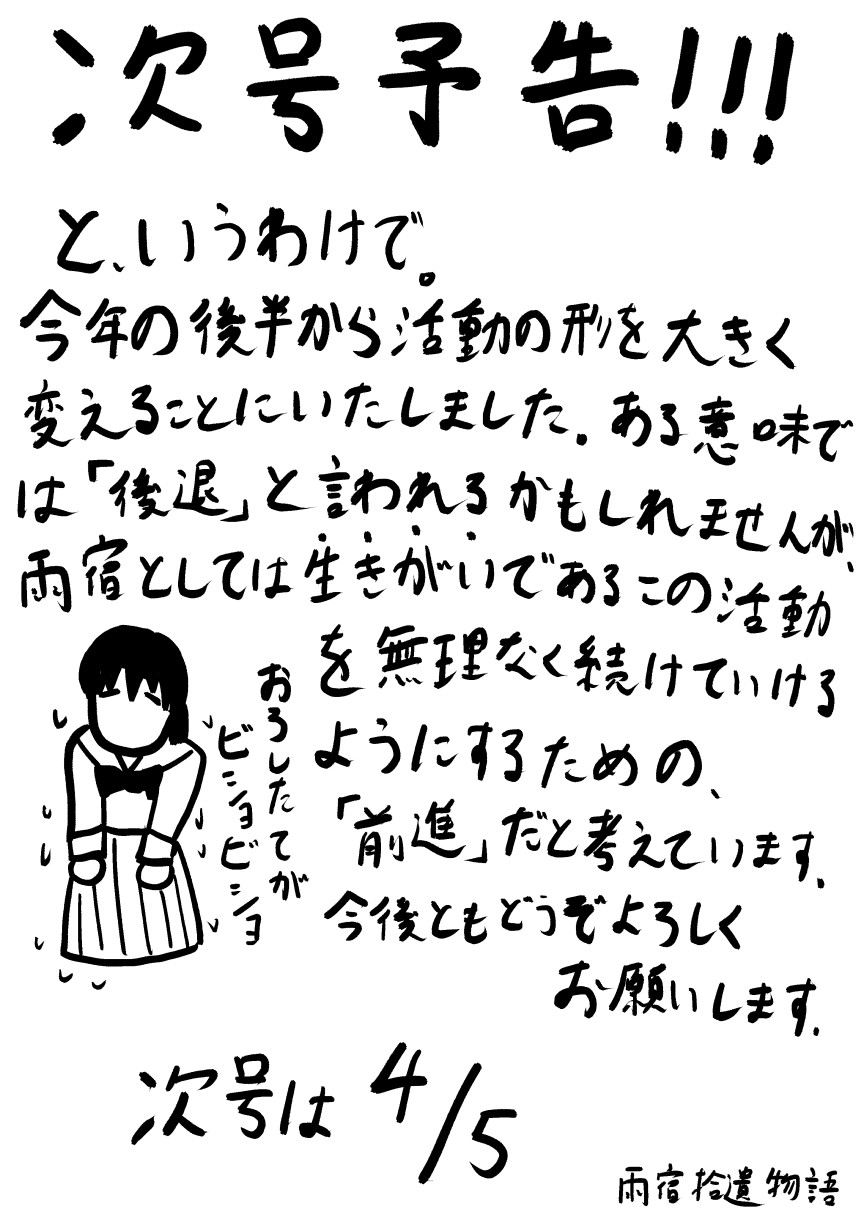 次号予告!!!
と、いうわけで。
今年の後半から活動の形を大きく
変えることにいたしました。ある意味で
は「後退」と言われるかもしれませんが、
雨宿としては生きがいであるこの活動
を無理なく続けていける
ようにするための、
「前進」だと考えています。
今後ともどうぞよろしく
お願いします。
おろしたてが
ビショビショ
次号は 4/5
雨宿拾遺物語